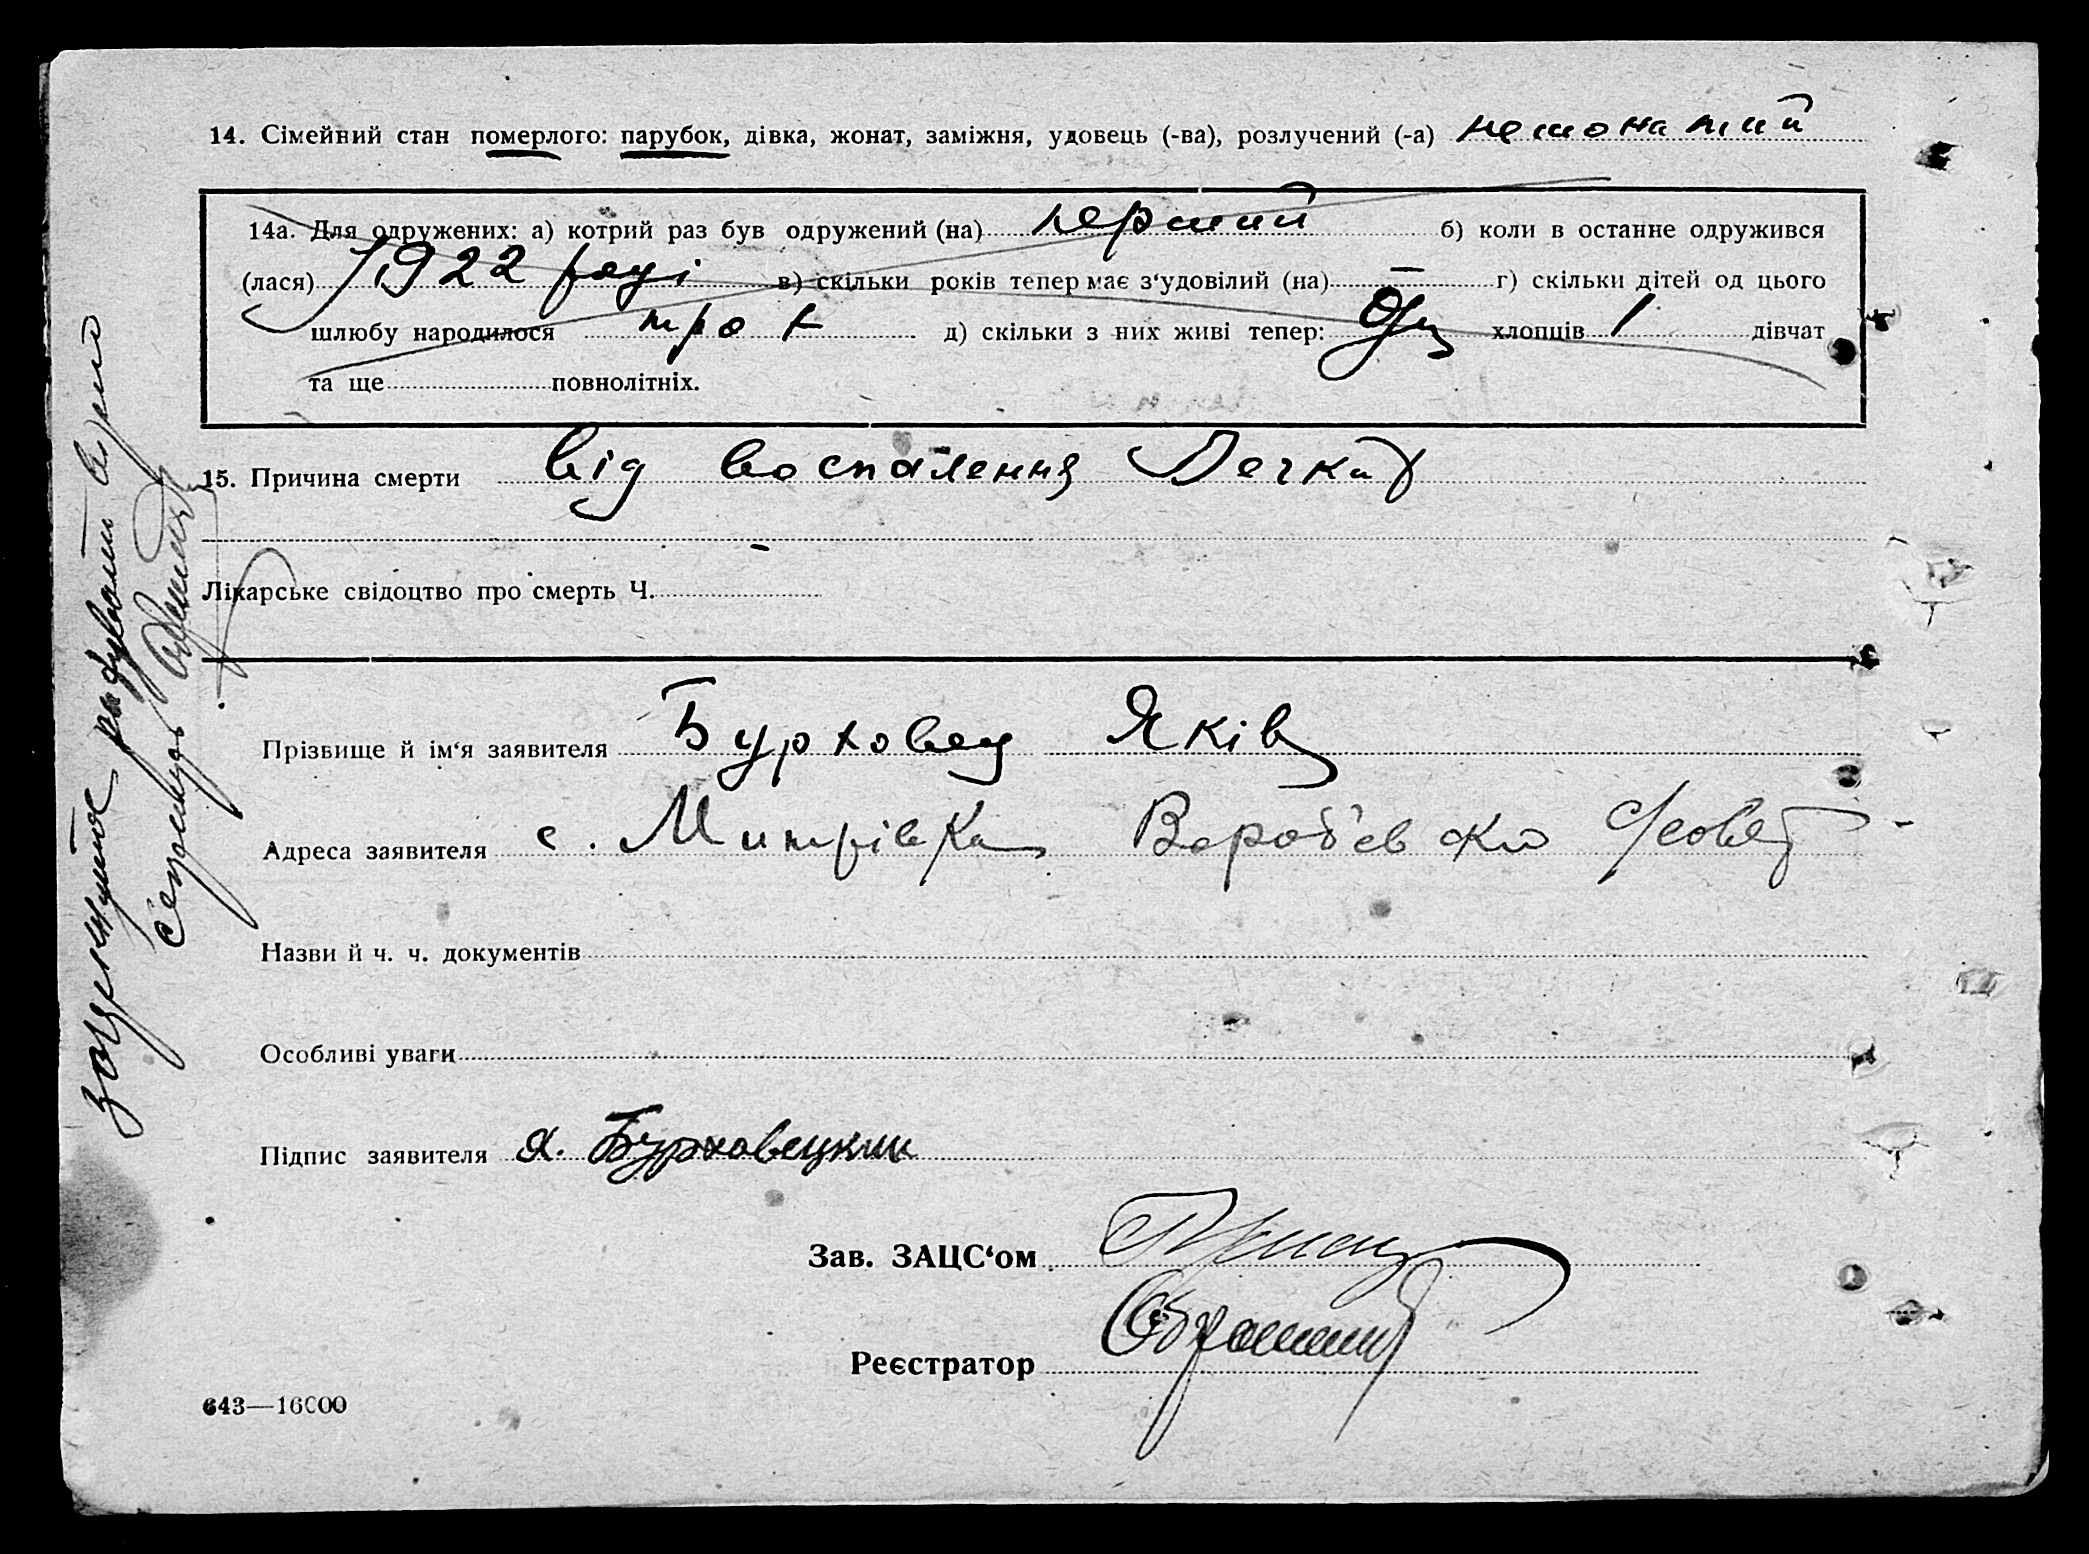 14. Сімейний стан померлого: парубок, дівка, жонат, заміжня, удовець (-ва), розлучений (-а) нежонатий
14а. Для одружених: а) котрий раз був одружений (на) перший б) коли в останне одружився
(лася) 1922 році в) скільки років тепер має з‘удовілий (на) — г) скільки дітей од цього
шлюбу народилося трох д) скільки з них живі тепер: хлопців 1 дівчат
та ще повнолітніх.
15. Причина смерти від воспалення Легких
Лікарське свідоцтво про смерть Ч. —
Прізвище й ім‘я заявителя Бурховец Яків
Адреса заявителя с. Митрівка Вороб'евско
Назви й ч. ч. документів
Особливі уваги
Підпис заявителя Я. Бурховецкий
Зав. ЗАЦС‘ом
Реєстратор
643—16000
закреслене рахувати вірно